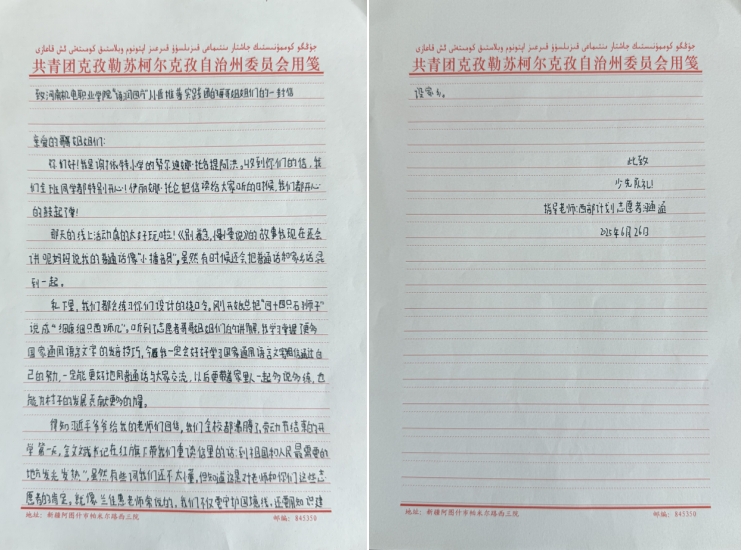 共青团克孜勒苏柯尔克孜自治州委员会用笺
致河南机电职业学院“语润四方”推普实践团的哥哥姐姐们的一封信
亲爱的哥哥姐姐们:
你们好!我是调依特小学的努尔迪娜·托合提阿洪。收到你们的信,我
们全班同学都特别开心!伊丽娜·托仑把信读给大家听的时候,我们都开心
的鼓起了掌!
那天的线上活动真的太好玩啦!《别着急,慢慢说》的故事我现在还会
讲呢妈妈说我的普通话像“小播音员”,虽然有时候还会把普通话和家乡话混
到一起。
私下里,我们都会练习你们设计的绕口令。刚开始总把“四十四只石狮子”
说成“细细细只西狮几”。听到了志愿者哥哥姐姐们的讲解,我学习掌握了更多
国家通用语言文字的发音技巧。今后我一定会好好学习国家通用语言文字相信通过自
己的努力,一定能更好地用普通话与大家交流。以后要带着家里人一起多说多练,也
能为村子的发展贡献更多的力量。
得知习近平爷爷给我的老师们回信,我们全校都沸腾了。劳动节结束的开
学第一天,书记在红旗下带我们重读信里的话:到祖国和人民最需要的
地方发光发热”,虽然有些词我们还不太懂,但知道这是对老师和你们这些志
愿者的肯定。就像兰佳惠老师常说的,我们不仅要守护国境线,还要用知识建
地址:新疆阿图什市帕米尔路西三院 邮编:845350
共青团克孜勒苏柯尔克孜自治州委员会用笺
设家乡。
此致
少先队礼!
指导老师:西部计划志愿者涵
2025年6月26日
地址:新疆阿图什市帕米尔路西三院 邮编:845350